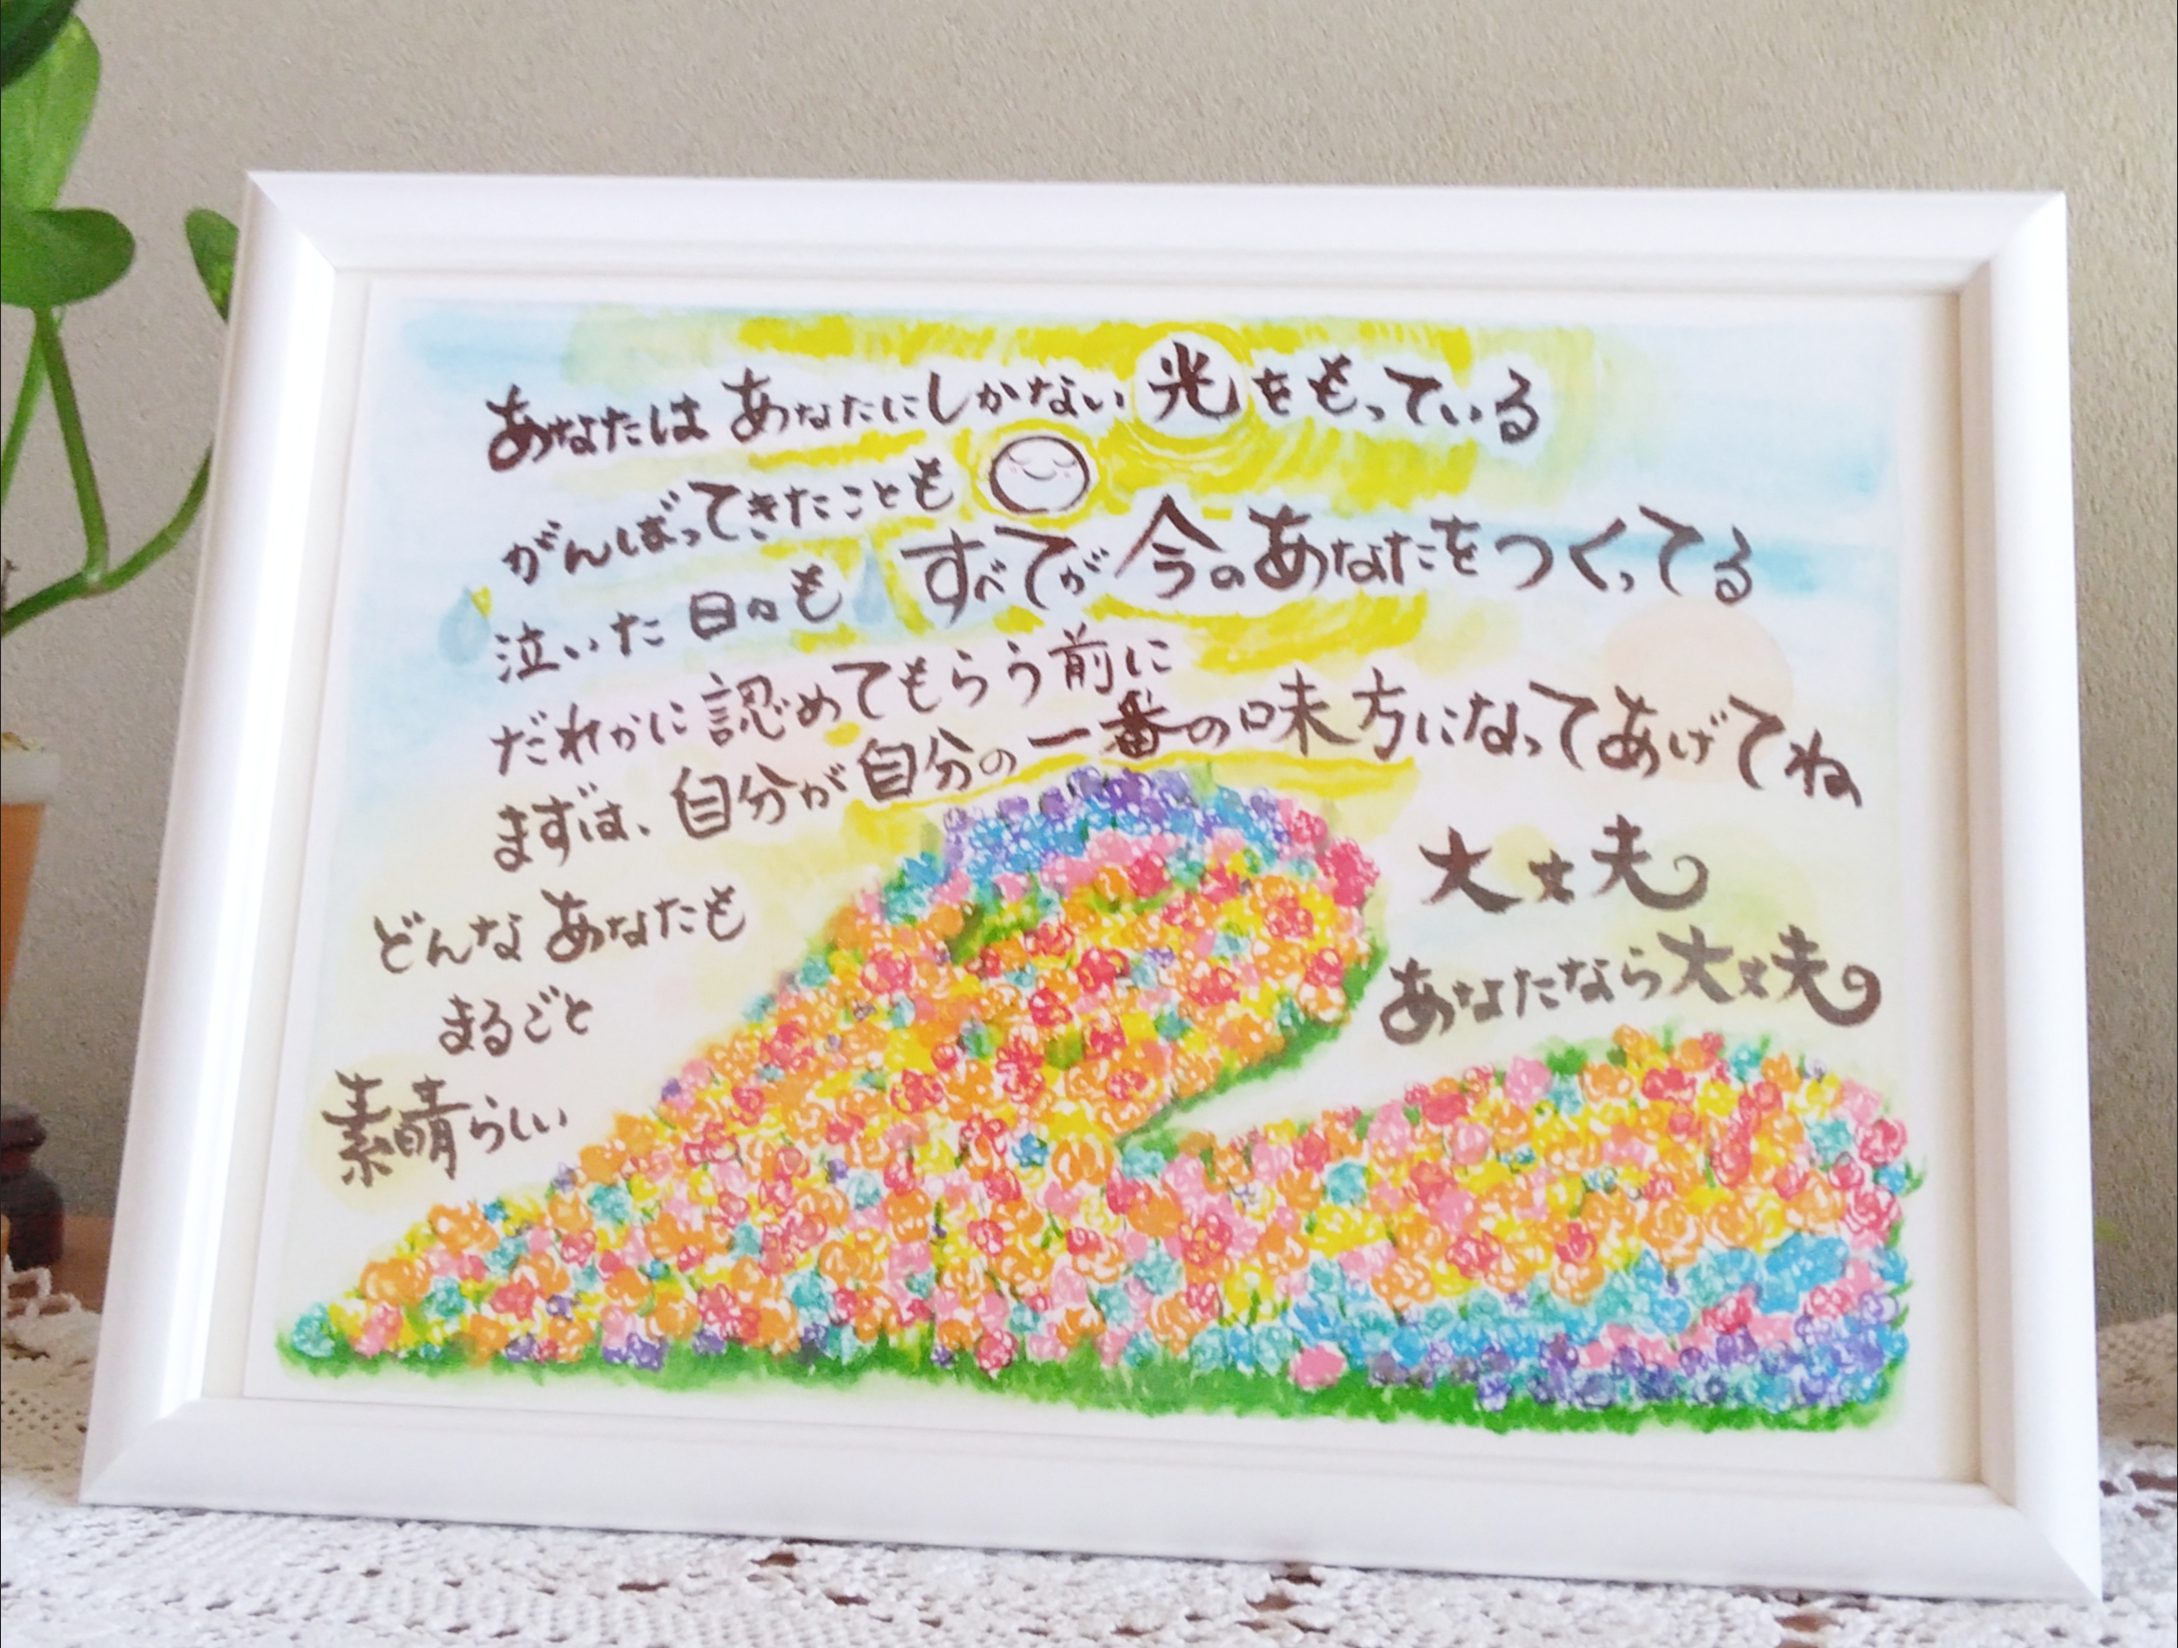 あなたは あなたにしかない 光をもっている
がんばってきたことも
泣いた日々も すべてが今のあなたをつくってる
だれかに認めてもらう前に
まずは、自分が自分の一番の味方になってあげてね
大丈夫
あなたなら大丈夫
どんなあなたも
まるごと
素晴らしい